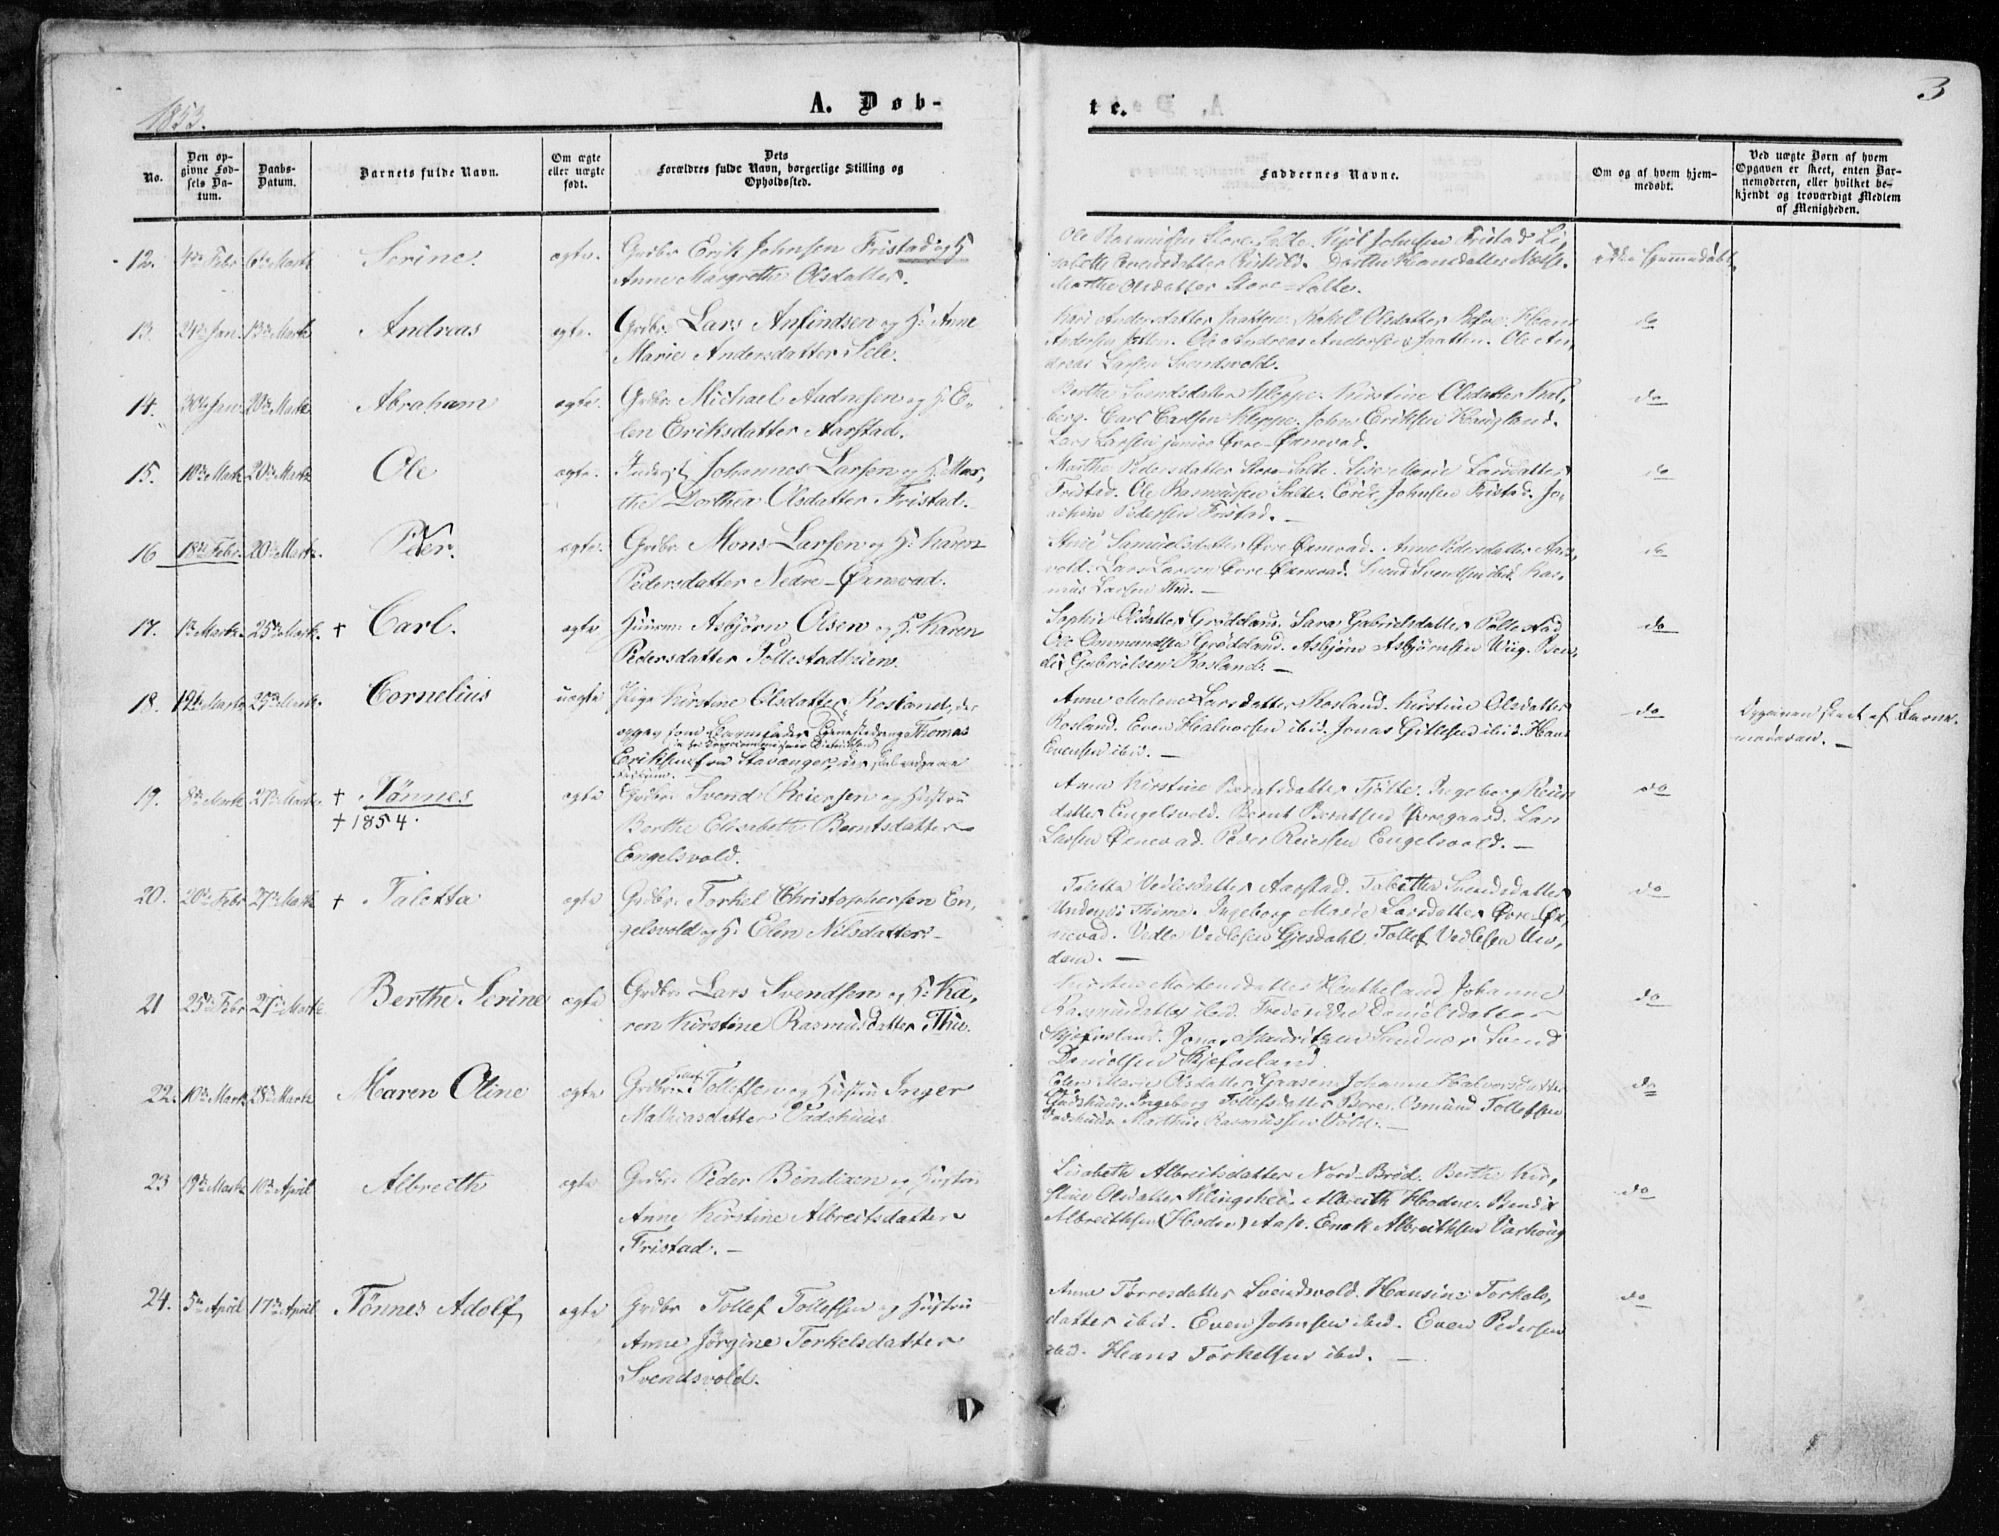 1853.
A. Døb-
te.
3
No.
Den op-
givne Fød-
sels Da-
tum.
Daabs-
Datum.
Barnets fulde Navn.
Om ægte
eller uægte
født.
Dets
Forældres fulde Navn, borgerlige Stilling og
Opholdssted.
Faddernes Navne.
Om og af hvem hjem-
medøbt.
Ved uægte Børn af hvem
Opgaven er skeet, enten Bar-
nemoderen, eller hvilket be-
kjendt og troværdigt Medlem
af Menigheden.
12. 4de Febr 6te Marts Serine. ægte. Grdbr Erik Johnsen Fristad og H
Anne Margrethe Olsdatter.
Ole Rasmussen Store-Salte. Kjel Johnsen Fristad
Dorthe Hansdatter
Marthe Olsdatter Store-Salte.
ikke hjemmedøbt
13. 24de Jan. 13de Marts Andreas ægte. Grdbr. Lars Anfindsen og H. Anne
Marie Andersdatter Sele.
Kari Andersdatter Jaatten. Rakel Olsdatter Bore. Hans
Andersen Jatten. Ole Andreas Andersen Jaatten. Ole An-
dreas Larsen Svendsvold.
do
14. 30te Jan. 20de Marts Abraham ægte. Grdbr. Michael Aadnesen og H. E-
len Eriksdatter Aarstad.
Berthe Svendsdatter Kleppe. Kirstine Olsdatter Kal-
berg. Carl Carlsen Kleppe. John Eriksen Haugland.
Lars Larsen junior Øvre-Øxnevad.
do
15. 10de Marts 20de Marts Ole ægte. Johannes Larsen og H. Mar-
the Dorthea Olsdatter Fristad.
Marthe Pedersdatter Store-Salte. Lise Marie Larsdatter
Fristad. Ole Rasmussen Salte. Johnsen Fristad. Jo-
achim Pedersen Fristad. —
do
16 18de Febr. 20de Marts. Peder. ægte. Grdbr. Mons Larsen og H. Karen
Pedersdatter Nedre-Øxnevad.
Samuelsdatter Øvre Øxnevad. Anne Pedersdatter
vold. Lars Larsen Øvre Øxnevad. Svend Svendsen ibid. Ras-
mus Larsen Thu. —
do
17. 1ste Marts. 25de Marts. † Carl. ægte Huusm. Asbjørn Olsen og H. Karen
Pedersdatter Tollestadheien.
Sophie Olsdatter Grødeland. Sara Gabrielsdatter Pollestad
Ole Ommundsen Grødeland. Asbjørn Asbjørnsen Wiig. Ben-
dix Gabrielsen Rosland. —
do
18. 19de Marts 25de Marts. Cornelius uægte Pige Kirstine Olsdatter Rosland, der
opgav som Barnefader Thomas
Eriksen fra Stavanger,
Anne Malene Larsdatter Rosland. Kirstine Olsdatter
Rosland. Even Halvorsen ibid. Jonas Gitlesen ibid. Hans
Evensen ibid. —
do
Opgaven skeet af Barne-
moderen. —
19. 8de Marts 27de Marts † Tønnes ægte Grdbr. Svend Reiersen og Hustru
† 1854.
Berthe Elisabeth Berntsdatter
Engelsvold.
Anne Kirstine Berntsdatter Tjøtte. Ingeborg Reiers
datter Engelsvold. Bernt Berntsen Øvregaard. Lars
Larsen Øxnevad. Peder Reiersen Engelsvold. —
do
20. 20de Febr 27de Marts † Taletta ægte Grdbr. Torkel Christophersen En-
gelsvold og H. Elen Nilsdatter. —
Taletta Vedlesdatter Aarstad. Tabitha Svendsdatter
Undem Thime. Ingeborg Marie Larsdatter Øvre Øx-
nevad. Vedle Vedlesen Gjesdahl. Tollef Vedlesen Un-
dem. —
do
21 25de Febr 27de Marts Berthe Serine ægte Grdbr. Lars Svendsen og H. Ka-
ren Kirstine Rasmusdatter Thu.
Kirsten Mortensdatter Johanne
Rasmusdatter ibid. Frederikke Danielsdatter
Skjefveland. Jonas Svend
Danielsen Skjefveland.
do
22. 10de Marts 28de Marts Maren Oline ægte Grdbr. Tollef Tollefsen og Hustru Inger
Mathiasdatter Vadshuus.
Elen Marie Olsdatter Gaasen. Johanne Halvorsdatter
Vadshuus. Ingeborg Tollefsdatter Bore. Osmund Tollefsen
Vadshuus. Marthin Rasmussen Vold. —
do
23 19de Marts 10de April Albreith ægte Grdbr. Peder Bendixen og Hustru
Anne Kirstine Albreitsdatter
Fristad. —
Lisabeth Albreitsdatter Nord-Brød. Berthe Kir-
stine Olsdatter Klingshei. Albreith Hodne. Bendix
Albreithsen (Hodne) Aase. Enok Albreithsen Varhoug
do
24. 5te April 17de April Tønnes Adolf ægte Grdbr Tollef Tollefsen og Hustru
Anne Jørgine Torkelsdatter
Svendsvold.
Anne Torresdatter Svendsvold. Hansine Torkels-
datter ibid. Even Johnsen ibid. Even Pedersen
ibid. Hans Torkelsen ibid. —
do